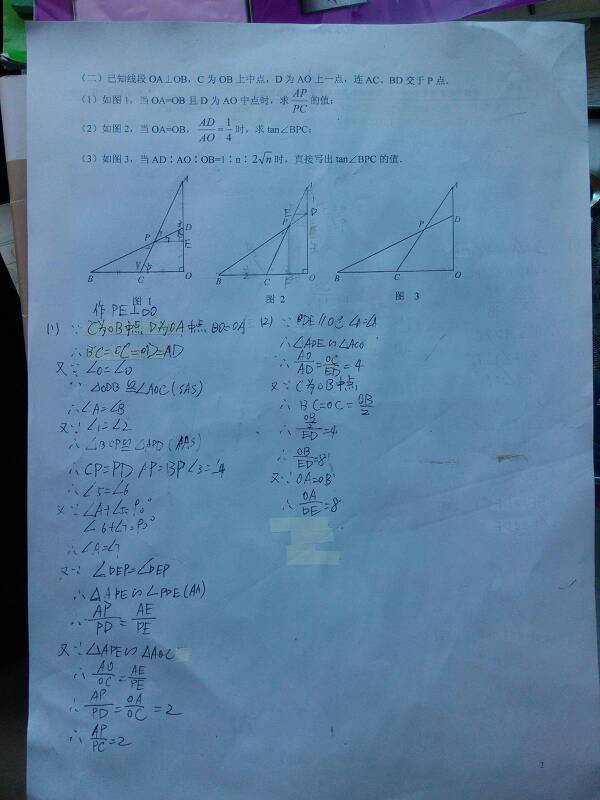 (二)已知线段 OA⊥OB,C 为 OB 上中点,D 为 AO 上一点,连 AC、BD 交于 P 点.
(1)如图 1,当 OA=OB 且 D 为 AO 中点时,求 AP/PC 的值;
(2)如图 2,当 OA=OB,AD/AO=1/4 时,求 tan∠BPC;
(3)如图 3,当 AD∶AO∶OB=1∶n∶2√n 时,直接写出 tan∠BPC 的值.
A
D
E
P
B
C
O
图 1
A
E
D
P
B
C
O
图 2
A
D
P
B
C
O
图 3
作 PE⊥DO
(1) ∵ C为OB中点 D为OA中点 BO=OA
∴ BC=OC=OD=AD
又∵ ∠O=∠O
∴ △ODB≌∠AOC(SAS)
∴∠A=∠B
又∵∠1=∠2
∴ ∠BCP≌△APD(AAS)
∴ CP=PD AP=BP ∠3=∠4
∴ ∠5=∠6
又∵ ∠A+∠5=90°
∠6+∠7=90°
∴ ∠A=∠7
又∵ ∠DEP=∠DEP
∴ △APE∽∠PDE(AA)
∴ AP/PD=AE/PE
又∵ △APE∽△AOC
∴ AO/OC=AE/PE
∴ AP/PD=OA/OC=2
∴ AP/PC=2
(2)
∴ ∠ADE∽∠ACO
∴ AO/AD=OC/ED=4
又∵ C为OB中点
∴ BC=OC=OB/2
∴ OB/2/ED=4
∴ OB/ED=8
又∵ OA=OB
∴ OA/DE=8
2